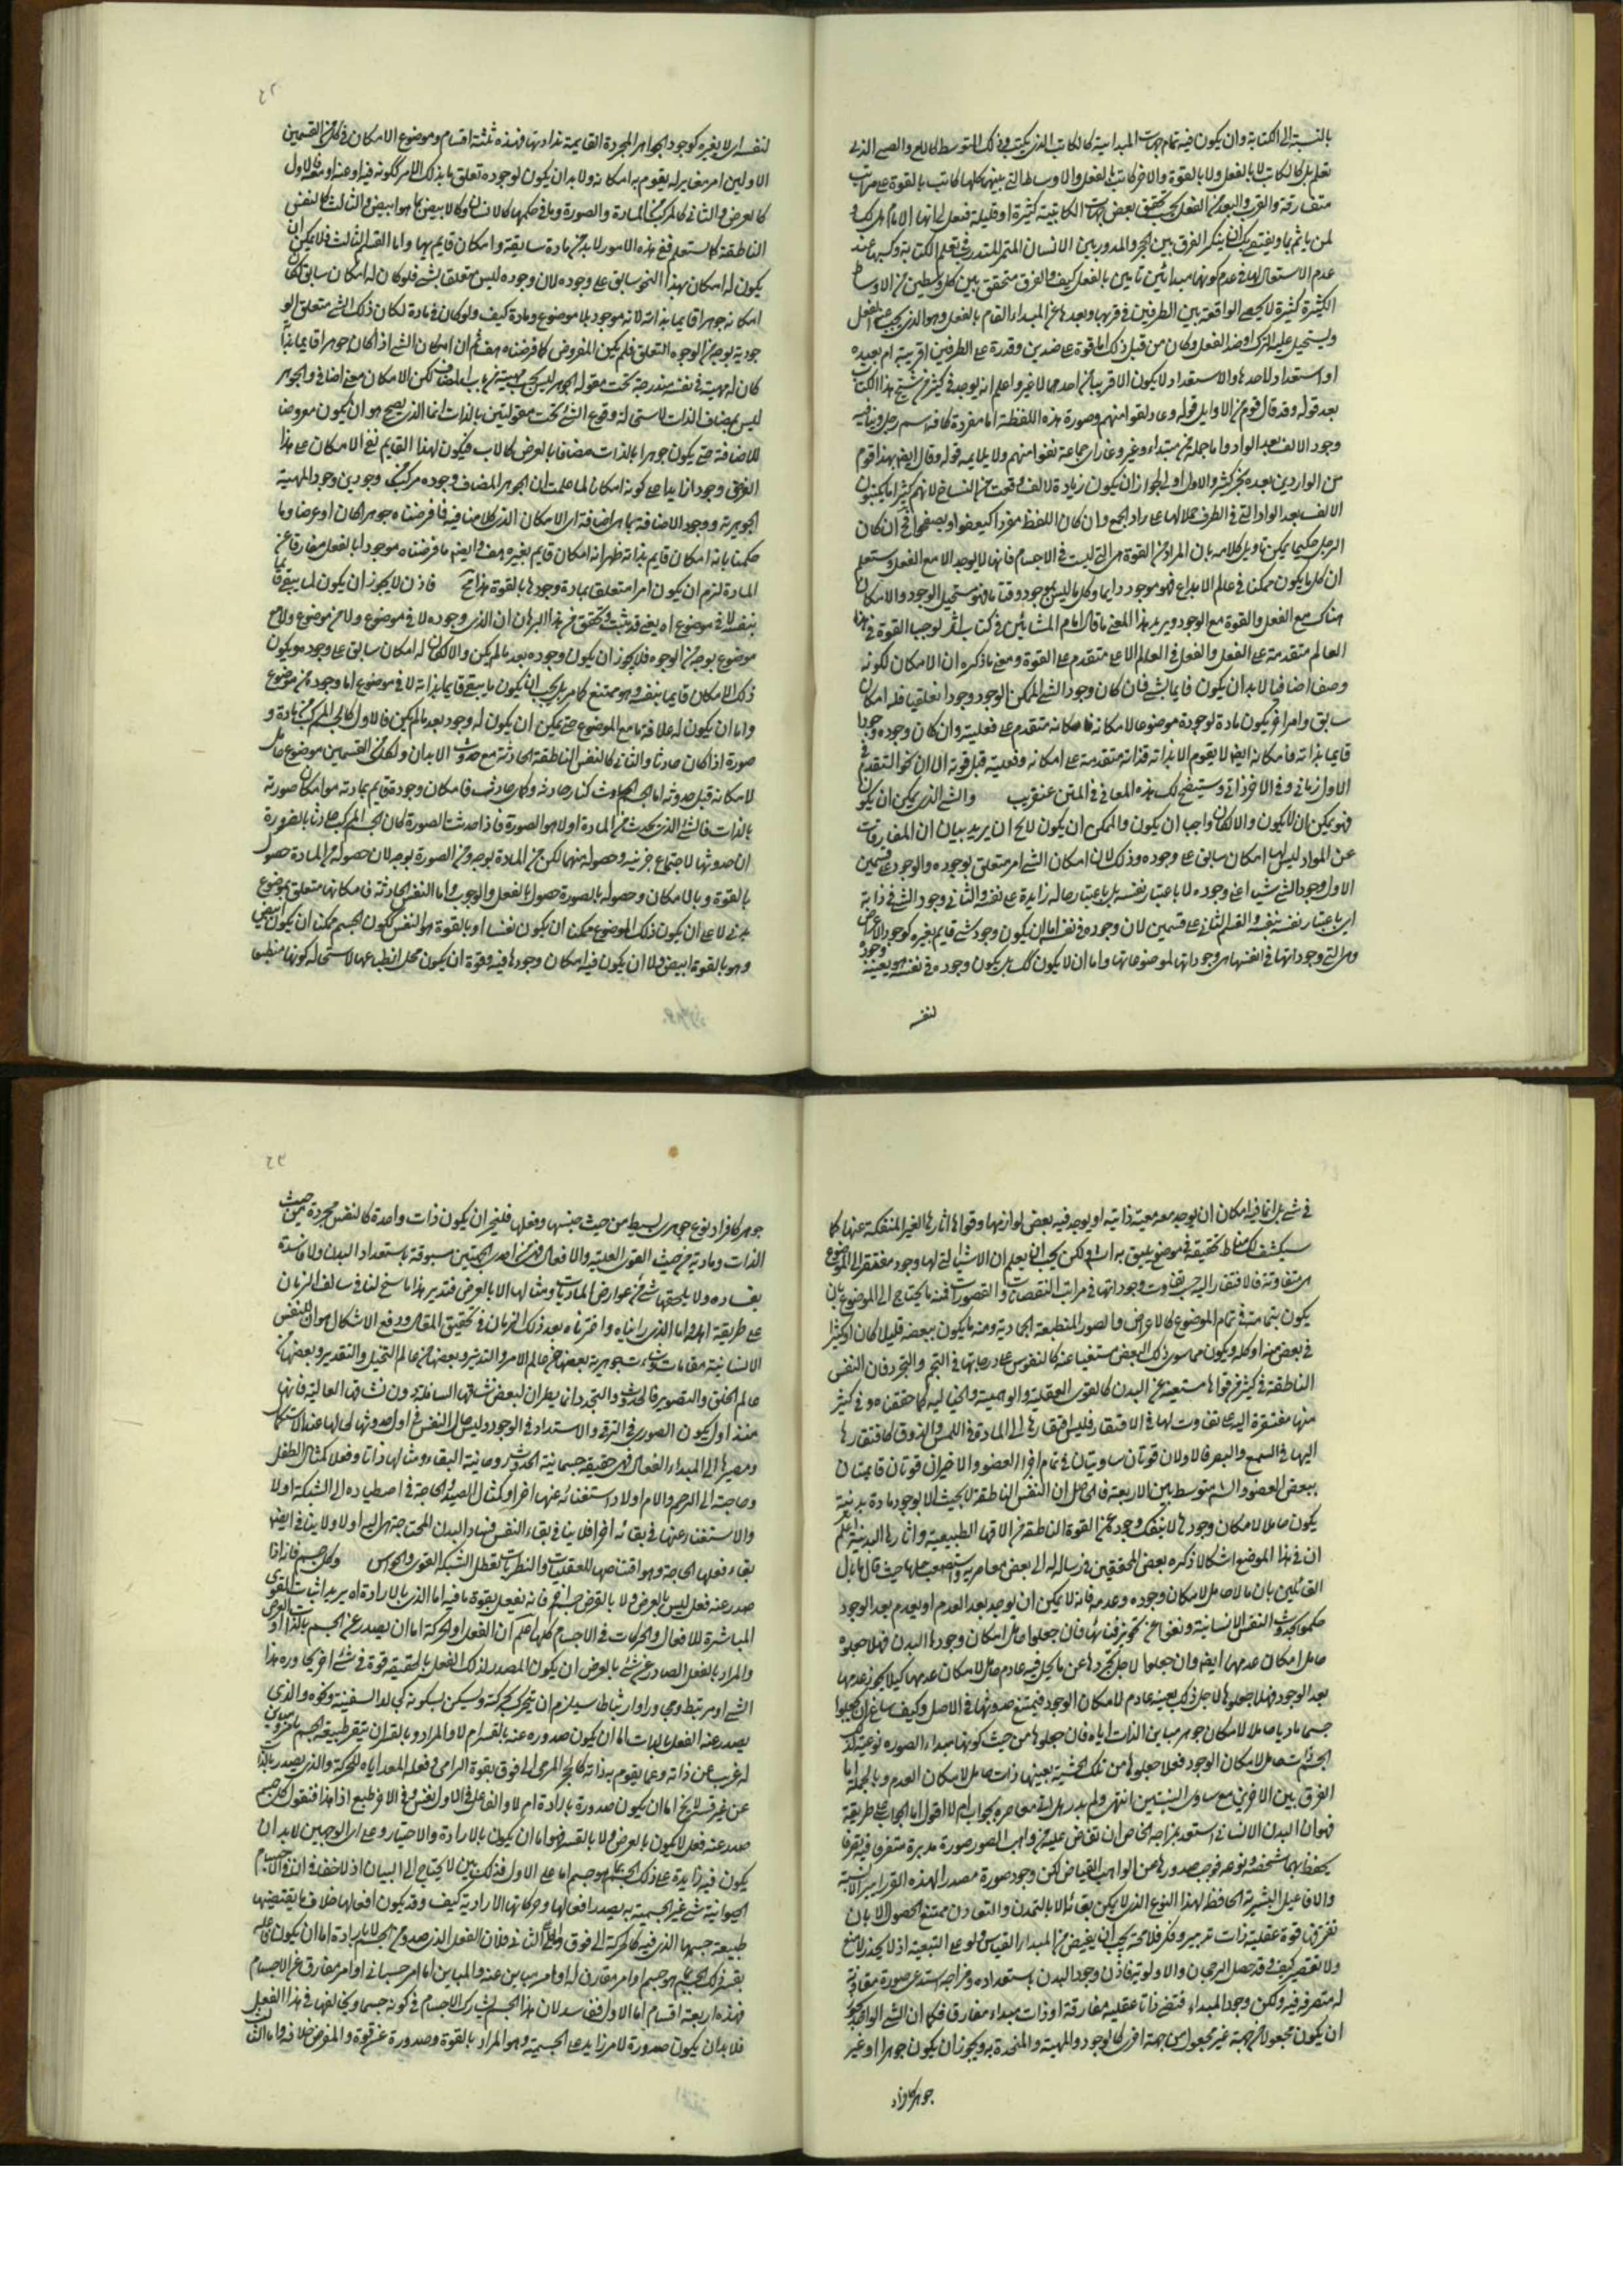 بالنسبة الى الكتابة وان يكون فيه تمام جهات المبدائية كالكاتب الذي يكتب وفي ذلك المتوسط كالامي والصبي الذي
تعلم بل كالكاتب لا بالفعل ولا بالقوة والاخر كاتب بالفعل والاوساط التي بينهما كلها كاتب بالقوة على مراتب
متفارقة والقرب والبعد من الفعل بحسب تحقق بعض جهات الكاتبية كثيرة او قليلة
عدم الاستعمال لها في عدم كونهما مبدائين تامين بالفعل كيف والفرق متحقق بين كل وسطين من الاوساط
الكثيرة كثيرة لا يحصى الواقعة بين الطرفين في قربها وبعدها عن المبداء التام بالفعل وهو الذي يجب الفعل
ويستحيل عليه الترك او ضد الفعل وكان من قبل ذلك اما قوة على ضدين وقدرة على الطرفين قريبة ام بعيدة
او استعداد لاحدهما والاستعداد لا يكون الا قريبا من احدهما لا غير واعلم انه يوجد في كثير من نسخ هذا الكتاب
بعد قوله وقد قال قوم من الاوايل قوله وعاد لقوا منهم وصورة هذه اللفظة اما مفردة
وجود الالف بعد الواو واما جملة من مبتداء وغير
من الواردين بعده بخبر كثير والاول اولى لجواز ان يكون زيادة الالف وقعت من النساخ لانهم كثيرا ما يكتبون
الالف بعد الواو التي في الطرف حملا لها على واو الجمع وان كان اللفظ مفردا كيغفوا ويصفحوا فح ان كان
الرجل حكيما يمكن تاويل كلامه بان المراد من القوة هي التي ليست في الاجسام فانها لا يوجد الا مع الفعل وستعلم
ان كل ما يكون ممكنا في عالم الابداع فهو موجود دايما وكل ما ليس بموجود وقتا ما فهو مستحيل الوجود والامكان
هناك مع الفعل والقوة مع الوجود ويريد هذا المعنى ما قال امام المشائين في كتاب اثولوجيا القوة في هذا
العالم متقدمة على الفعل والفعل في العالم الاعلى متقدم على القوة ومعنى ما ذكره ان الامكان لكونه
وصفا اضافيا لا بد ان يكون قايما بشئ فان كان وجود الشئ الممكن الوجود وجودا تعلقيا فله امكان
سابق وامر اخر يكون مادة لوجوده موضوعا لامكانه فامكانه متقدم على فعليته وان كان وجوده وجودا
قايما بذاته فامكانه ايضا لا يقوم الا بذاته فذاته متقدمة على امكانه وفعليته قبل قوته الا ان نحو التقدم في
الاول زماني وفي الاخر ذاتي وستتضح لك هذه المعاني في المتن عنقريب والشئ الذي يمكن ان يكون
فهو يمكن ان لا يكون والا لكان واجبا ان يكون والممكن ان يكون لا يخ ان يريد بيان ان المفارقات
عن المواد ليس لها امكان سابق على وجوده وذلك لان امكان الشئ امر متعلق بوجوده والوجود على قسمين
الاول وجود الشئ شيئا اعني وجوده لا باعتبار نفسه بل باعتبار حالة زايدة على نفسه والثاني وجود الشئ في ذاته
اي باعتبار نفسه بنفسه والقسم الثاني على قسمين لان وجوده في نفسه اما ان يكون وجود شئ قايم بغيره كوجود الاعراض
وهي التي وجوداتها في انفسها هي وجوداتها لموضوعاتها واما ان لا يكون كذلك بل يكون وجوده في نفسه هو بعينه وجوده
لنفسه
٤٢
لنفسه اي لا بغيره كوجود الجواهر المجردة القايمة بذاوتها فهذه ثلثة اقسام وموضوع الامكان في كل من القسمين
الاولين امر مغاير له يقوم به امكانه ولا بد ان يكون لوجوده تعلق بما بذلك الامر لكونه فيه او عنه او معه فالاول
كالعرض والثاني كالمركب من المادة والصورة وما في حكمهما كالانسان وكالابيض بما هو ابيض والثالث كالنفس
الناطقة كما ستعلم ففي هذه الامور لا بد من مادة سابقة وامكان قايم بها واما القسم الثالث فلا يمكن ان
يكون له امكان بهذا النحو سابق على وجوده لان وجوده ليس متعلقا بشئ فلو كان له امكان سابق لكان
امكانه جوهرا قايما بذاته لانه موجود بلا موضوع ومادة كيف ولو كان في مادة لكان ذلك الشئ متعلق الو
جود به بوجه من الوجوه التعلق فلم يكن المفروض كما فرضناه هف ثم ان امكان الشئ اذا كان جوهرا قايما بذاته
كان له مهية في نفسه مندرجة تحت مقولة الجوهر ليس بحسب مهيته من باب المضاف لكن الامكان معنى اضافي والجوهر
ليس بمضاف الذات لاستحالة وقوع الشئ تحت مقولتين بالذات انما الذي يصح هو ان يكون معروضا
للاضافة حتى يكون جوهرا بالذات مضافا بالعرض كالاب فيكون لهذا القايم نفي الامكان على هذا
الفرض وجودا زايدا على كونه امكان لما علمت ان الجوهر المضاف وجوده مركب من وجودين وجود المهية
الجوهرية ووجود الاضافة بما هي اضافة اي الامكان الذي كلامنا فيه فما فرضناه جوهرا كان او عرضا وما
حكمنا بانه امكان قايم بذاته ظهر انه امكان قايم بغيره هف وايضا ما فرضناه موجودا بالفعل مفارقا عن
المادة لزم ان يكون امرا متعلقا بمادة وجودها بالقوة هذا مح فاذن لا يجوز ان يكون لما يبقى قايما
بنفسه لا في موضوع اه يعني قد ثبت وتحقق من هذا البرهان ان الذي وجوده لا في موضوع ولا من موضوع ولا مع
موضوع بوجه من الوجوه فلا يجوز ان يكون وجوده بعد ما لم يكن والا لكان له امكان سابق على وجوده ويكون
ذلك الامكان قايما بنفسه وهو ممتنع كما مر بل يجب ان يكون ما يبقى قايما بذاته لا في موضوع اما وجوده من موضوع
واما ان يكون له علاقة ما مع الموضوع حتى يمكن ان يكون له وجود بعد ما لم يكن فالاول كالجسم المركب من مادة و
صورة اذا كان حادثا والثاني كالنفس الناطقة الحادثة مع حدوث الابدان ولكل من القسمين موضوع حامل
لامكانه قبل حدوثه اما الجسم الحادث كنار حادثة وكهواء حادث فامكان وجوده قايم بمادته هو امكان صورته
بالذات فالشئ الذي يحدث من المادة اولا هو الصورة فاذا حدثت الصورة كان الجسم المركب حادثا بالضرورة
ان حدوثها لاجتماع جزئيه وحصوله منهما لكن من المادة بوجه ومن الصورة بوجه لان حصوله من المادة حصول
بالقوة وبالامكان وحصوله بالصورة حصول بالفعل والوجوب واما النفس الحادثة فامكانها متعلق بموضوع
بدني لا على ان يكون ذلك الموضوع ممكنا ان يكون نفسا او بالقوة هو النفس لكون الجسم ممكنا ان يكون ابيض
وهو بالقوة ابيض ولا ان يكون فيه امكان وجودها فيه وقوة ان يكون محل انطباعها لاستحالة كونها منطبعا
في شئ بل انما فيه امكان ان يوجد معه معية ذاتية او يوجد فيه بعض لوازمها وقواها اثارها الغير المنفكة عنها كما
سيكشف لك مناط تحقيقه في موضع يليق به ان شاء الله ولكن يجب ان يعلم ان الاشياء التي لها وجود مفتقر الى الموضوع
هي متفاوتة في الافتقار اليه حسب تفاوت وجوداتها في مراتب النقصان والقصورات فمنه ما يحتاج الى الموضوع بان
يكون بتمامه في تمام الموضوع كالاعراض والصور المنطبعة الجمادية ومنه ما يكون ببعضه قليلا كان او كثيرا
في بعض منه او كله ويكون مما سوى ذلك البعض مستغنيا عنه كالنفوس على درجاتها في التجسم والتجرد فان النفس
الناطقة في كثير من قواها مستغنية عن البدن كالقوى العقلية والوهمية والخيالية كما حققناه وفي كثير
منها مفتقرة اليه على تفاوت لها في الافتقار فليس افتقارها الى المادة في اللمس والذوق كافتقارها
اليها في السمع والبصر فالاولان قوتان ساريتان في تمام اجزاء العضو والاخيران قوتان قايمتان
ببعض العضو والشم متوسط بين الاربعة فالحاصل ان النفس الناطقة لا بحيث الا بوجود مادة بدنية
يكون حاملا لامكان وجودها لا ينفك وجوده عن القوة الناطقة من الاتها الطبيعية واثارها البدنية ثم اعلم
ان في هذا الموضع اشكالا ذكره بعض المحققين في رسالة له الى بعض معاصريه واستصعب حله حيث قال ما بال
القائلين بان ما لا حامل لامكان وجوده وعدمه فانه لا يمكن ان يوجد بعد العدم او يعدم بعد الوجود
حكموا بحدوث النفس الانسانية ومنعوا عن تجويز فنائها فان جعلوا حامل امكان وجودها البدن فهلا جعلوه
حامل امكان عدمها ايضا وان جعلوا لاجل تجردها عن ما يحل فيه عادم حامل لامكان عدمها كيلا يجوز عدمها
بعد الوجود فهلا جعلوها لاجل ذلك بعينه عادم لامكان الوجود فيمتنع حدوثها في الاصل وكيف ساغ لهم ان يجعلوا
جسما ماديا حاملا لامكان جوهر مباين الذات اياه فان جعلوها من حيث كونها مبداء الصورة نوعية لذلك
الجسم ذات حامل لامكان الوجود فهلا جعلوها من تلك الحيثية بعينها ذات حامل لامكان العدم وبالجملة ما
الفرق بين الامرين مع تساوي النسبتين انتهى ولم يدر هل اتى معاصره بجواب ام لا اقول اما الجواب على طريقة
فهو ان البدن الانساني استعد بمزاجه الخاص ان تفاض عليه من واهب الصور صورة مدبرة متصرفة فيه تصرفا
يحفظ بها شخصه ونوعه فوجب صدورها عن الواهب الفياض لكن وجود صورة مصدر لهذه التدابير الانسية
والافاعيل البشرية الحافظة لهذا النوع الذي لا يمكن بقائه الا بالتمدن والتعاون ممتنع الحصول الا بان
تقترن قوة عقلية ذات تدبير وفكر فلا محة يجب ان يفيض من المبداء الفياض ولو على التبعية اذ لا بخل ولا منع
ولا تقصير كيف وقد حصل الرجحان والاولوية فاذن وجود البدن باستعداده ومزاجه استدعى صورة مقارنة
له متصرفة فيه ولكن وجود المبداء اقتضى ذاتا عقلية مفارقة او ذات مبداء مفارق فكما ان الشئ الواحد يجوز
ان يكون مجعولا من جهة غير مجعول من جهة اخرى كالوجود والمهية والمتحدة به ويجوز ان يكون جوهرا وغير
جوهر كافراد
٤٣
جوهر كافراد نوع جوهري بسيط من حيث جنسها وفصلها فليجز ان يكون ذات واحدة كالنفس مجردة من حيث
الذات ومادية من حيث القوى العلمية والافعال فهي من احدى الجهتين مسبوقة باستعداد البدن ولا فاسدة
بفساده ولا يلحقها شئ من عوارض الماديات ومثالها الا بالعرض فتدبر هذا ما سنح لنا في سالف الزمان
على طريقة اهل واما الذي رايناه واخترناه بعد ذلك الزمان في تحقيق المقام ودفع الاشكال هو ان للنفس
الانسانية مقامات ونشاءات جوهرية بعضها من عالم الامر والتدبير وبعضها من عالم التخيل والتقدير وبعضها من
عالم الخلق والتصوير فالحدوث والتجدد انما يطران لبعض نشاتها السافلة دون نشاتها العالية فانها
منذ اول يكون الصوري في الترقي والاستداد في الوجود وليس حال النفس في اول حدوثها كحالها عند الاستكمال
ومصيرها الى المبداء الفعال فهي حقيقة جسمانية الحدوث روحانية البقاء ومثالها ذاتا وفعلا كمثال الطفل
وحاجته الى الرحم والام اولا واستغنائه عنها اخرا وكمثال الصيد والحاجة في اصطياده الى الشبكة اولا
والاستغناء عنها في بقائه اخرا فلا ينافي بقاء النفس فساد البدن المحتاجة هي اليه اولا ولا ينافي ايضا
بقاء فعلها الحاجة وهو اقتناصها للعقليات والنظريات لتعطل الشبكة القوى والحواس وكل جسم فاذا
صدر عنه فعل ليس بالعرض ولا بالقسر من جسم اخر فانه يفعل بقوة ما فيه اما الذي بالارادة اه يريد اثبات القوى
المباشرة للافعال والحركات في الاجسام كلها اعلم ان الفعل او الحركة اما ان يصدر عن الجسم بالذات او بالعرض
والمراد بالفعل الصادر عن شئ بالعرض ان يكون المصدر لذلك الفعل بالحقيقة قوة في شئ اخر يجاوره هذا
الشئ او مرتبط وي وراو ارتباطا سيلزم ان يتحرك بحركته ويسكن بسكونه كجالس السفينة ونحوه والذي
يصدر عنه الفعل بالذات اما ان يكون صدوره عنه بالقسر ام لا والمراد بالقسر ان يتغير طبيعة الجسم بامر مباين
له غريب عن ذاته وعما يقوم به ذاته كالحجر المرمى الى فوق بقوة الرامي وفعله المعد اياه للحركة والذي يصدر بالذات
عن غير قسر لا يخ اما ان يكون صدوره بارادة ام لا والفاعل في الاول نفس وفي الاخر طبع اذا هذا فنقول كل جسم
صدر عنه فعل لا يكون بالعرض ولا بالقسر فهو اما ان يكون بالارادة والاختيار وعلى اي الوجهين لا بد ان
يكون فيه زايدة على ذلك الجسم بما هو جسم اما على الاول فذلك بين لا يحتاج الى البيان اذ لا خفاء في ان للاجسام
الحيوانية شئ غير الجسمية به يصدر افعالها وحركاتها الارادية كيف وقد يكون افعالها خلاف ما يقتضيها
طبيعة جسمها الذي فيه كالحركة الى فوق واما الثاني فلان الفعل الذي صدوره من الجسم لا بارادة اما ان يكون فاعله
نفس ذلك الجسم بما هو جسم او امر مقارن له او امر مباين عنه والمباين اما امر جسماني او امر مفارق عن الاجسام
فهذه اربعة اقسام اما الاول ففاسد لان هذا الجسم يشارك الاجسام في كونه جسما ويخالفها في هذا الفعل
فلا بد ان يكون صدوره لامر زايد على الجسمية وهو المراد بالقوة وصدوره عن قوة والمفروض خلافه واما الثاني